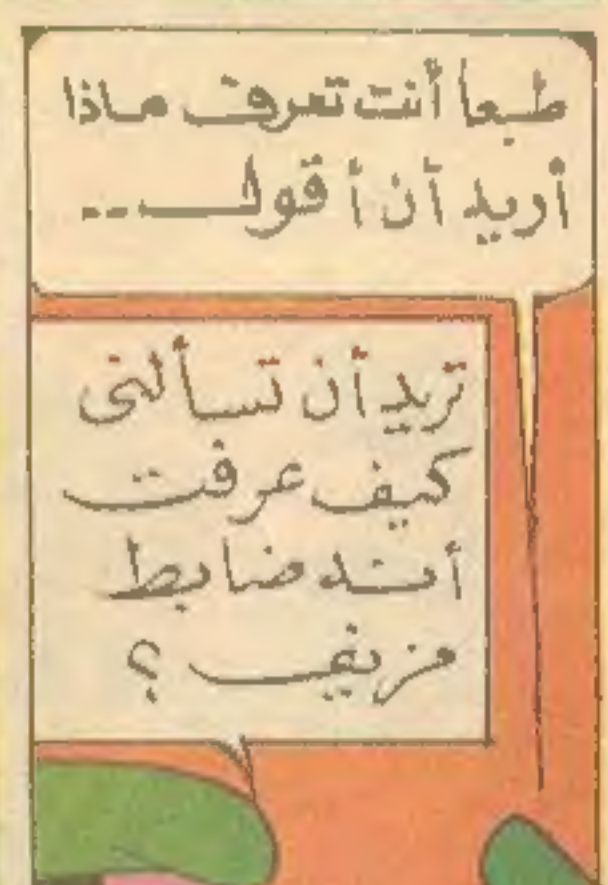 طبعا أنت تعرف ماذا
أريد أن أقول --
تريد أن تسألنى
كيف عرفت
أنه ضابط
مزيف ؟